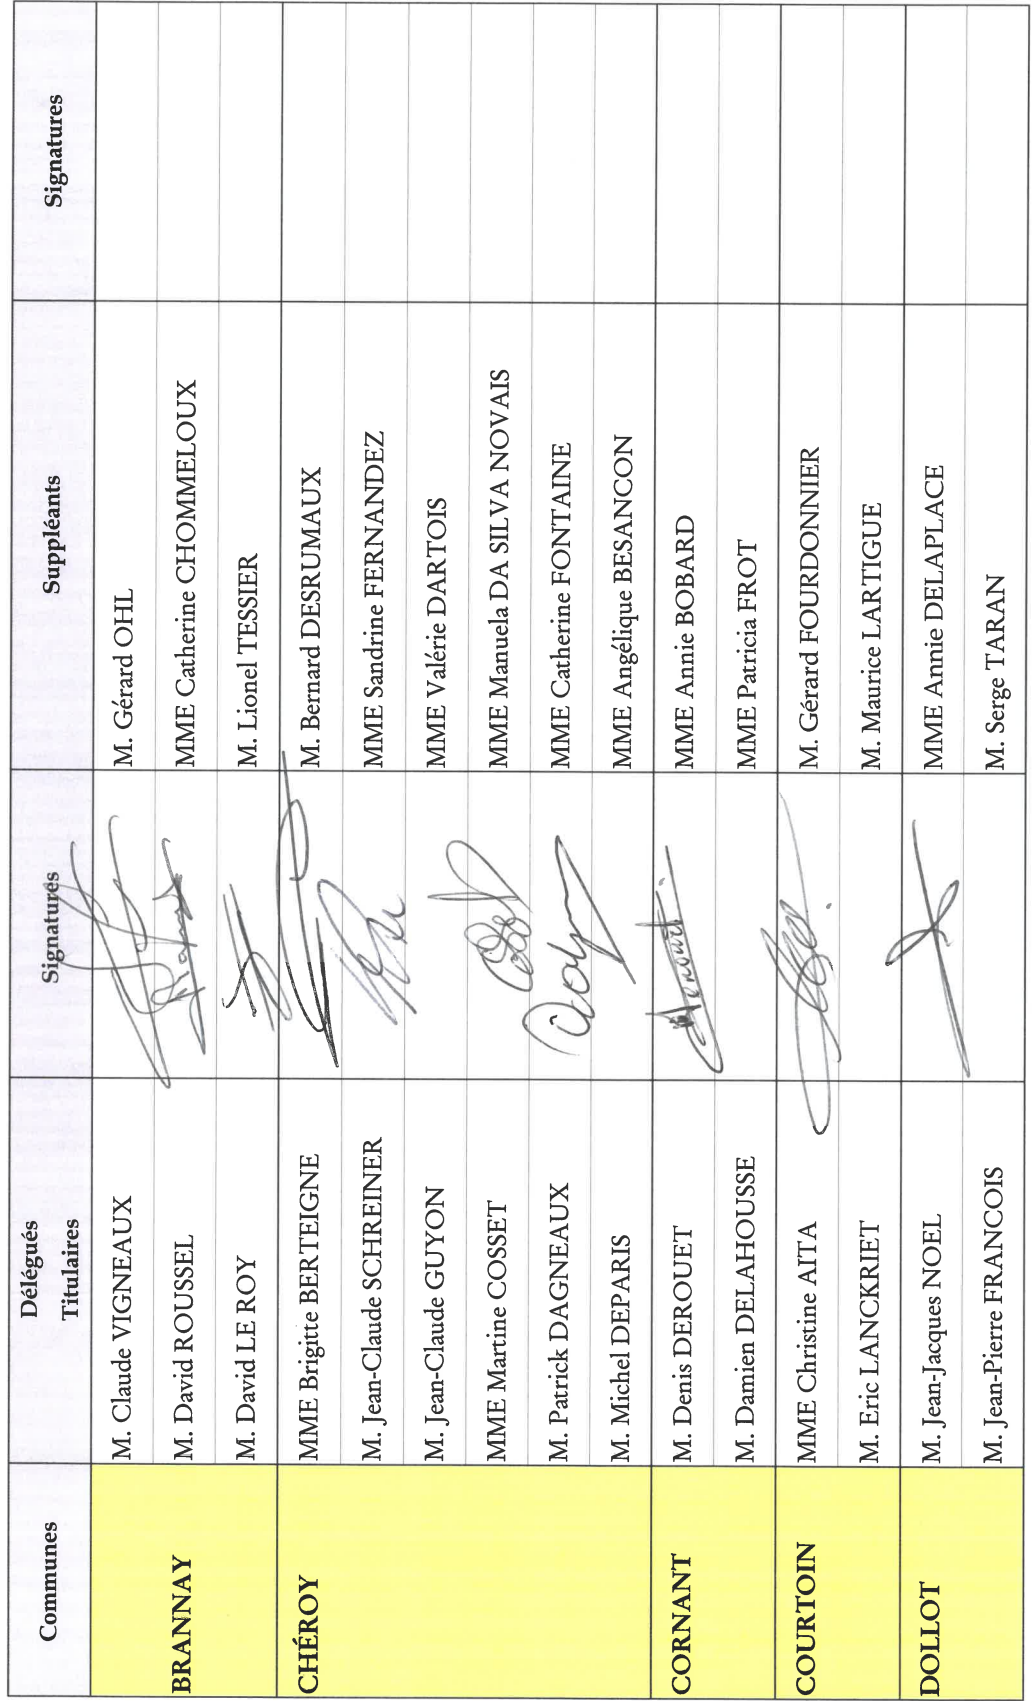 Communes Délégués Titulaires Signatures Suppléants Signatures
BRANNAY M. Claude VIGNEAUX M. Gérard OHL
M. David ROUSSEL MME Catherine CHOMMELOUX
M. David LE ROY M. Lionel TESSIER
CHÉROY MME Brigitte BERTEIGNE M. Bernard DESRUMAUX
M. Jean-Claude SCHREINER MME Sandrine FERNANDEZ
M. Jean-Claude GUYON MME Valérie DARTOIS
MME Martine COSSET MME Manuela DA SILVA NOVAIS
M. Patrick DAGNEAUX MME Catherine FONTAINE
M. Michel DEPARIS MME Angélique BESANCON
CORNANT M. Denis DEROUET MME Annie BOBARD
M. Damien DELAHOUSSE MME Patricia FROT
COURTOIN MME Christine AITA M. Gérard FOURDONNIER
M. Eric LANCKRIET M. Maurice LARTIGUE
DOLLOT M. Jean-Jacques NOEL MME Annie DELAPLACE
M. Jean-Pierre FRANCOIS M. Serge TARAN